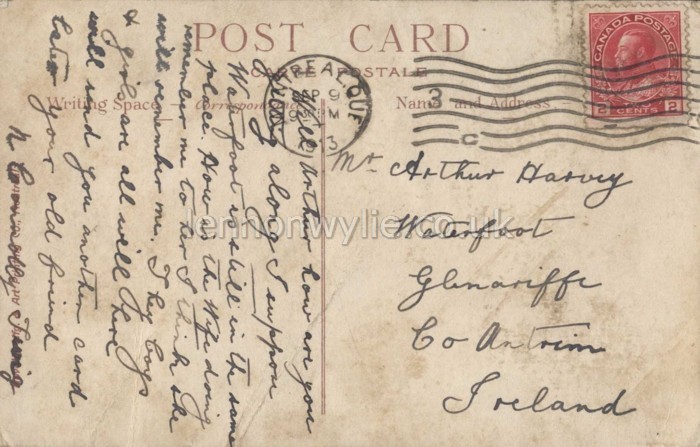 POST CARD
CARTE POSTALE
Writing Space
Correspondance
Name and Address
MONTREAL QUE
AP 9
M
13
3
C
CANADA POSTAGE
2 CENTS 2
Well Arthur how are you
getting along I suppose
Waterfoot is still in the same
place. How is the Wife doing
remember me to her I think she
will remember me. The boys
& girls are all well here
will send you another card
later your old friend
N Connolly
Mr Arthur Harvey
Waterfoot
Glenariffe
Co Antrim
Ireland
lennonwylie.co.uk